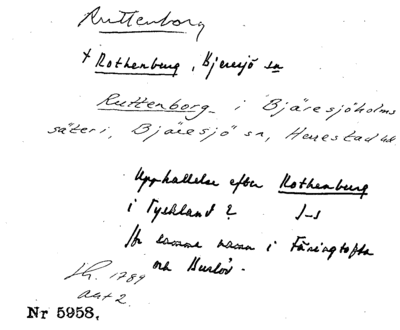 Ruttenborg
+ Rothenburg, Bjeresjö sn
Ruttenborg i "Bjäresjöholms
säteri, Bjäresjö" sn, Herrestad hd.
Upphallelse efter Rothenburg
i Tyskland? J-s
Jfr samma namn i Färingtofta
och Burlöv.
Lh. 1789
akt 2.
Nr 5958.